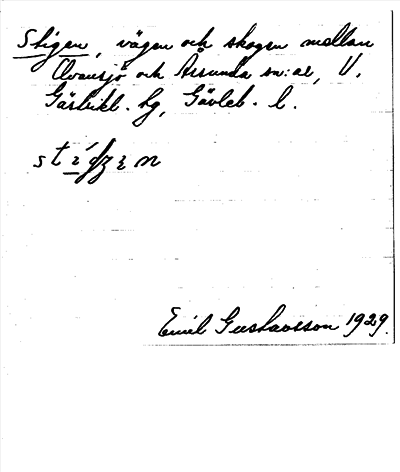 Stigen, vägen och skogen mellan
Ovansjö och Årsunda sn:ar, V.
Gästrikl. hg, Gävleb. l.
Emil Gustavsson 1929.